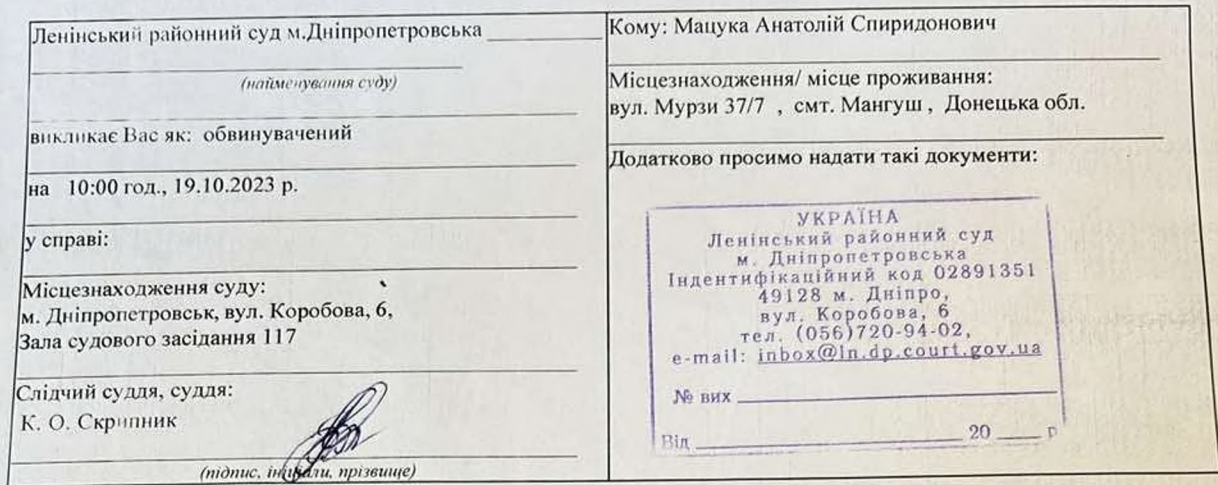 Ленінський районний суд м.Дніпропетровська
(найменування суду)
викликає Вас як: обвинувачений
на 10:00 год., 19.10.2023 р.
у справі:
Місцезнаходження суду:
м. Дніпропетровськ, вул. Коробова, 6,
Зала судового засідання 117
Слідчий суддя, суддя:
К. О. Скрипник
(підпис, ініціали, прізвище)
Кому: Мацука Анатолій Спиридонович
Місцезнаходження/ місце проживання:
вул. Мурзи 37/7 , смт. Мангуш , Донецька обл.
Додатково просимо надати такі документи:
УКРАЇНА
Ленінський районний суд
м. Дніпропетровська
Індентифікаційний код 02891351
49128 м. Дніпро,
вул. Коробова, 6
тел. (056)720-94-02,
e-mail: inbox@ln.dp.court.gov.ua
№ вих
Від 20 р